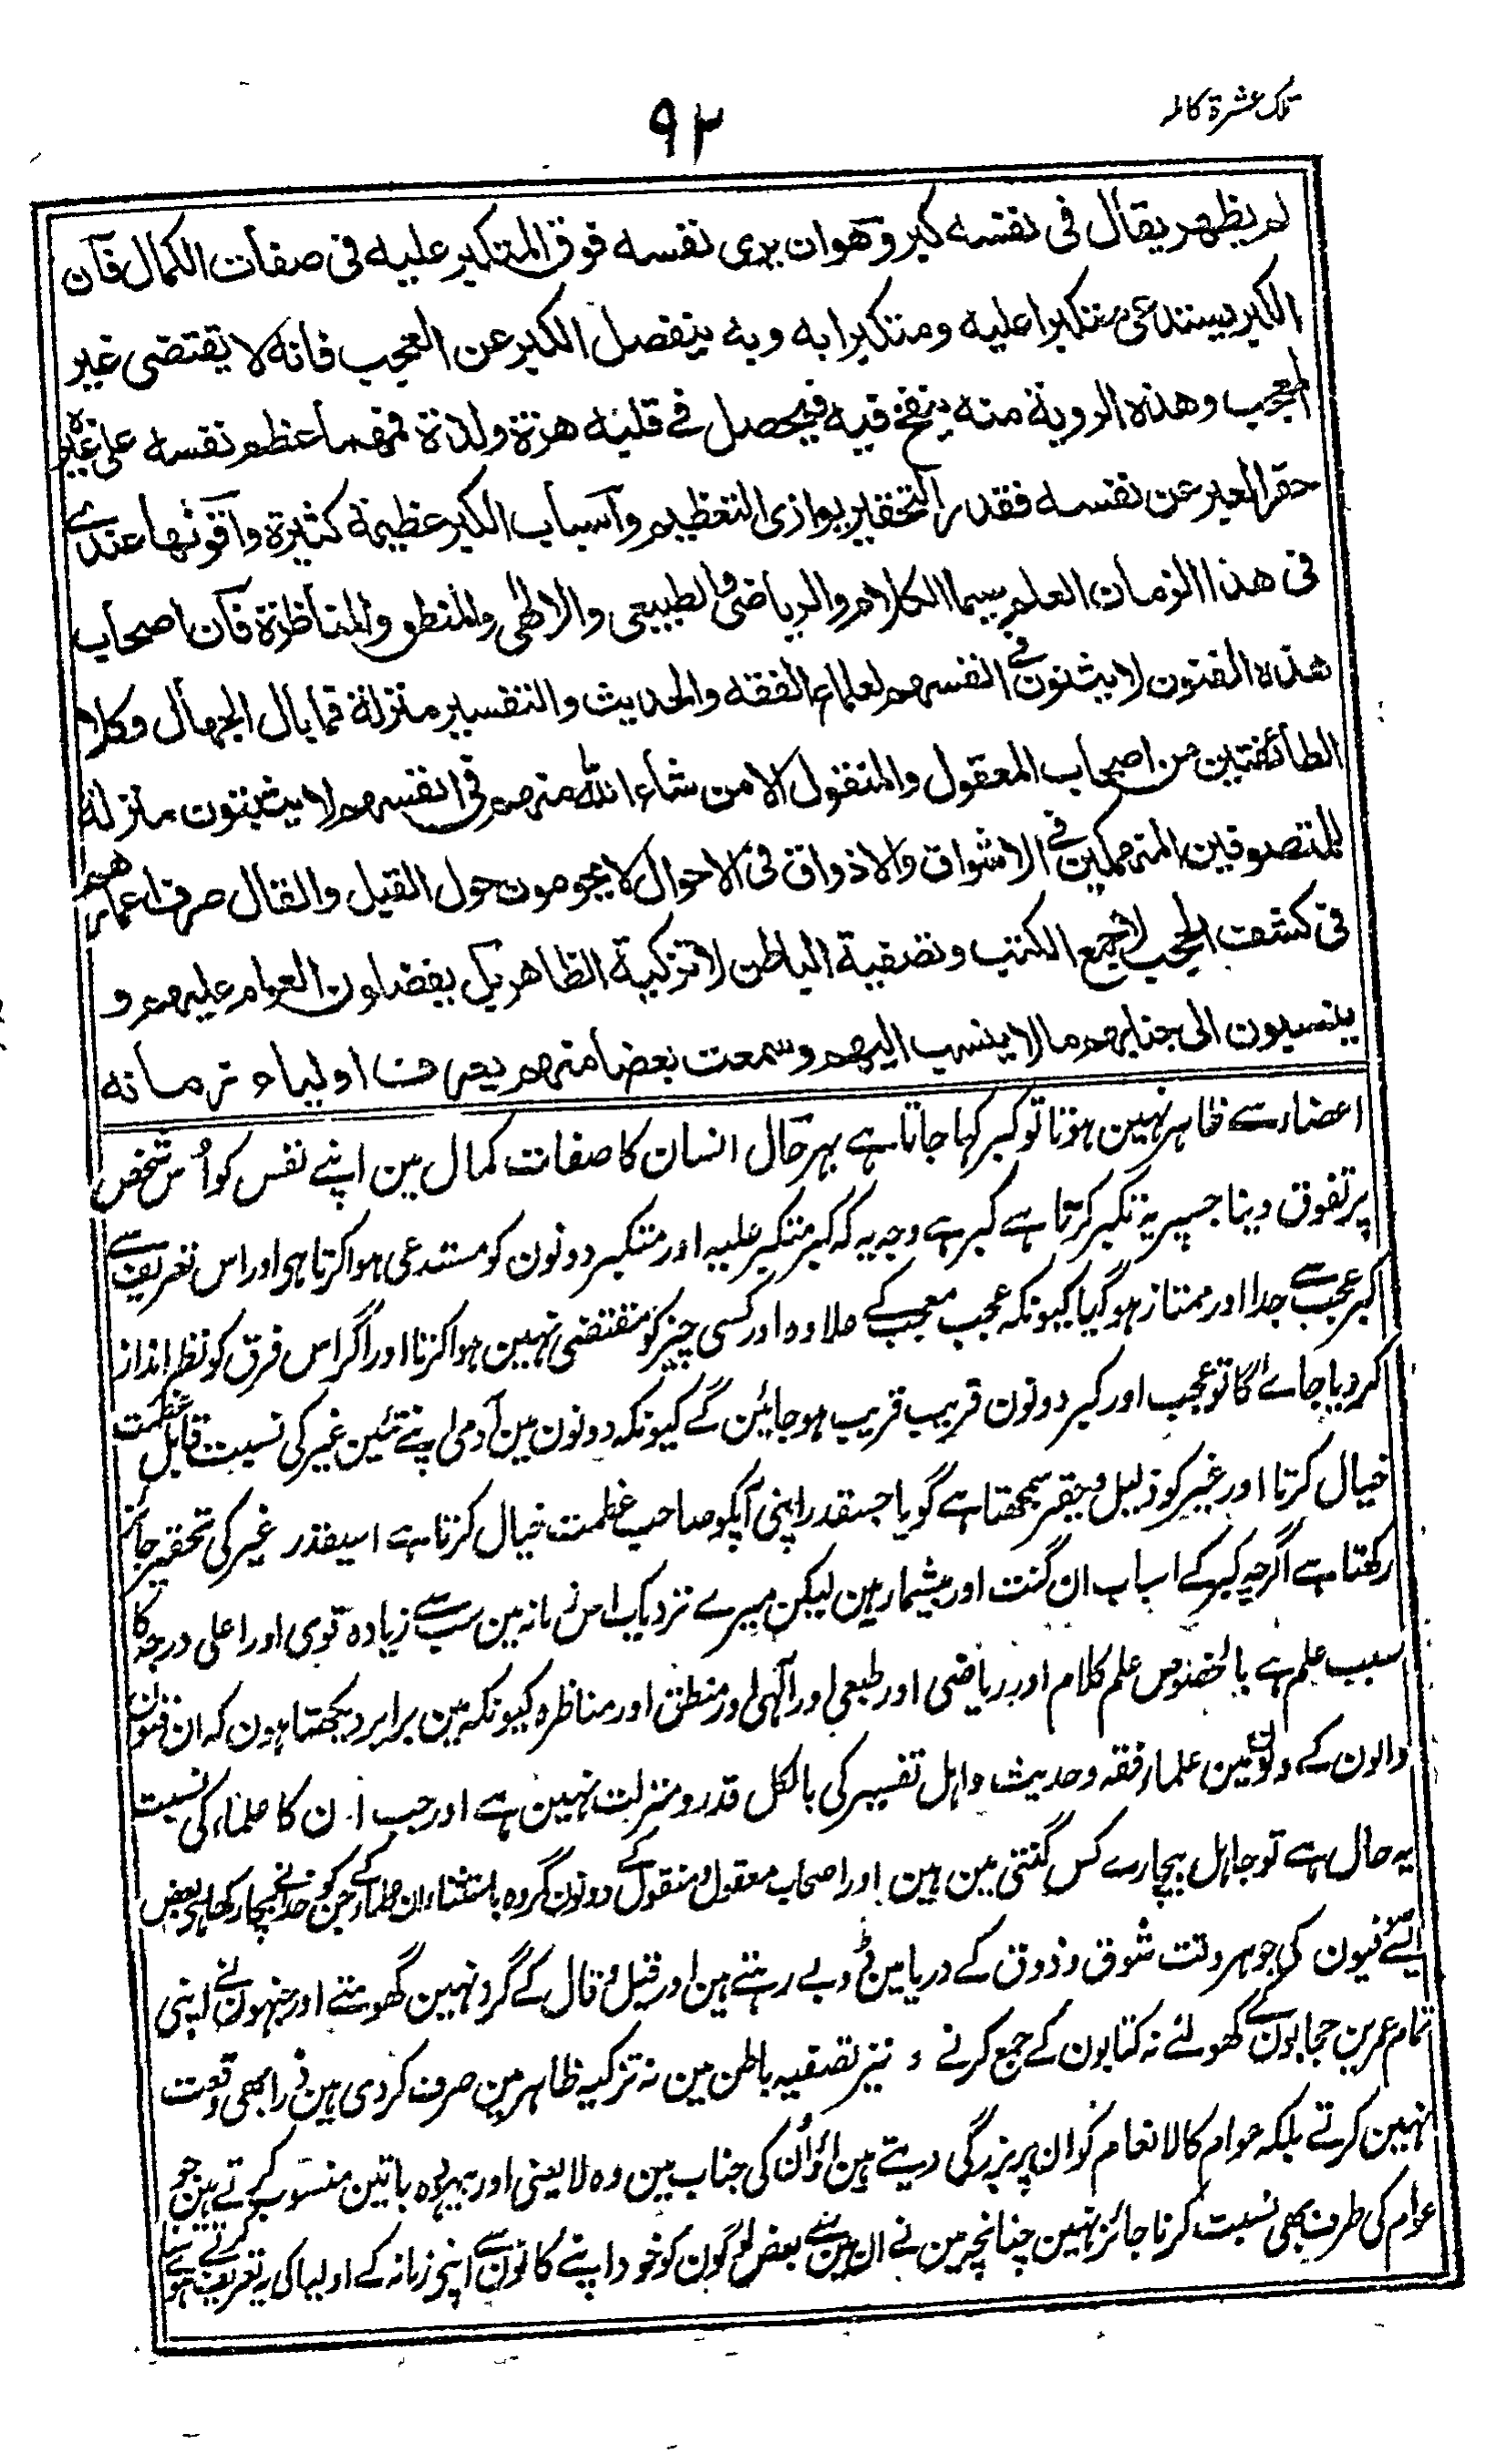 تلک عشرۃ کاملہ
۹۲
لم یظهر یقال فی نفسه کبر وهو ان یری نفسه فوق المتکبر علیه فی صفات الکمال فان
الکبر یستدعی متکبرا علیه ومتکبرا به وبه ینفصل الکبر عن العجب فانه لا یقتضی غیر
المعجب وهذه الرویة منه ینفخ فیه فیحصل فے قلبه هزة ولذة فمهما عظم نفسه علی غیره
حقر الغیر عن نفسه فقدر التحقیر یوازی التعظیم واسباب الکبر عظیمة کثیرة واقوٰها عندے
فی هذا الزمان العلم سیما الکلام والریاضی والطبیعی والالٰهی والمنطق والمناظرة فان اصحاب
هذه الفنون لا یثبتون فے انفسهم لعلماء الفقه والحدیث والتفسیر منزلة فما بال الجهال وکلا
الطائفتین من اصحاب المعقول والمنقول الا من شاء الله منهم فی انفسهم لا یثبتون منزلة
للمتصوفین المنهمکین فے الاشواق والاذواق فی الاحوال لا یحومون حول القیل والقال صرفوا اعمارهم
فی کشف الحجب لا جمع الکتب وتصفیة الباطن لا تزکیة الظاهر بل یفضلون العوام علیهم و
ینسبون الی جنابهم ما لا ینسب الیهم وسمعت بعضا منهم یعرف اولیاء زمانه
اعضاء سے ظاہر نہین ہوتا تو کبر کہا جاتا ہے بہر حال انسان کا صفات کمال مین اپنے نفس کو اُس شخص
پر تفوق دینا جسپر یہ تکبر کرتا ہے کبر ہے وجہ یہ کہ کبر متکبر علیہ اور متکبر دونون کو مستدعی ہوا کرتا ہے اور اس تعریف سے
کبر عجب سے جدا اور ممتاز ہو گیا کیونکہ عجب معجب کے علاوہ اور کسی چیز کو مقتضی نہین ہوا کرتا اور اگر اس فرق کو نظر انداز
کر دیا جائے گا تو عجب اور کبر دونون قریب قریب ہو جائین گے کیونکہ دونون مین آدمی اپنے تئین غیر کی نسبت قابل عظمت
خیال کرتا اور غیر کو ذلیل و حقیر سمجھتا ہے گویا جسقدر اپنی آپکو صاحب عظمت خیال کرتا ہے اسیقدر غیر کی تحقیر جائز
رکھتا ہے اگرچہ کبر کے اسباب ان گنت اور بیشمار ہین لیکن میرے نزدیک اس زمانہ مین سب سے زیادہ قوی اور اعلی درجہ کا
سبب علم ہے بالخصوص علم کلام اور ریاضی اور طبعی اور الٰہی اور منطق اور مناظرہ کیونکہ مین برابر دیکھتا ہون کہ ان فنون
والون کے دلون مین علماء فقہ و حدیث و اہل تفسیر کی بالکل قدر و منزلت نہین ہے اور جب ان کا علماء کی نسبت
یہ حال ہے تو جاہل بیچارے کس گنتی مین ہین اور اصحاب معقول و منقول کے دونون گروہ باستثناء ان علماء کے جن کو خدا نے بچا رکھا ہے بعض
ایسے صوفیون کی جو ہر وقت شوق و ذوق کے دریا مین ڈوبے رہتے ہین اور قیل و قال کے گرد نہین گھومتے اور جنہون نے اپنی
تمام عمرین حجابون کے کھولنے نہ کتابون کے جمع کرنے و نیز تصفیہ باطن مین نہ تزکیہ ظاہر مین صرف کر دی ہین ذرا بھی وقعت
نہین کرتے بلکہ عوام کالانعام کو ان پر بزرگی دیتے ہین اور اُن کی جناب مین وہ لایعنی اور بیہودہ باتین منسوب کرتے ہین جو
عوام کی طرف بھی نسبت کرنا جائز نہین چنانچہ مین نے ان مین سے بعض لوگون کو خود اپنے کانون سے اپنی زمانہ کے اولیا کی یہ تعریف کرتے ہوئے سنا